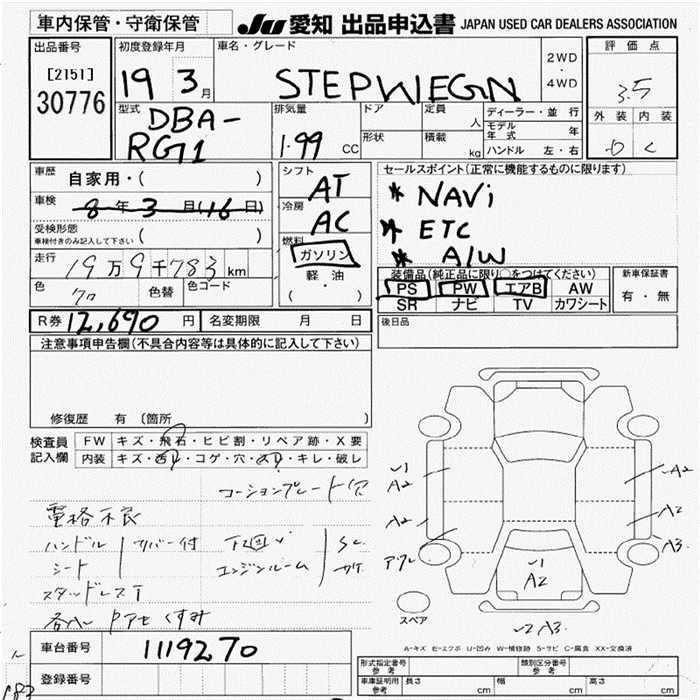 車内保管・守衛保管
JU 愛知 出品申込書 JAPAN USED CAR DEALERS ASSOCIATION
出品番号 初度登録年月 車名・グレード 評価点
[2151]
30776
19 3月
STEPWEGN
2WD
・
4WD
3.5
外装 内装
C
型式 DBA-
RG1
排気量
1.99 CC
ドア
形状
定員 人
積載 kg
ディーラー・並行
モデル年式 年
ハンドル 左・右
車歴 自家用・( )
車検 8年3月(16日)
受検形態
車検付きのみ記入して下さい ( )
走行 19万9千783km
色 クロ 色替 色コード
シフト AT
冷房 AC
燃料 ガソリン
軽油
( ・ )
セールスポイント(正常に機能するものに限ります)
* NAVi
* ETC
* A/W
装備品(純正品に限り○をつけてください)
PS PW エアB AW
SR ナビ TV カワシート
新車保証書
有・無
R券 12,690円 名変期限 月 日
後日品
注意事項申告欄(不具合内容等は具体的に記入して下さい)
修復歴 有 〔箇所 〕
検査員
記入欄
FW キズ・飛石・ヒビ割・リペア跡・X要
内装 キズ・西レ・コゲ・穴・スレ・キレ・破レ
コーションプレート穴
電格不良
ハンドル カバー付 下回り Sc
シート エンジンルーム サケ
スタッドレスT
各ハレ Pアセ くすみ
A2
A2
A2
A2
A3
A2
A3
スペア
A-キズ E-エクボ U-凹み W-補修跡 S-サビ C-腐食 XX-交換済
車台番号 1119270
登録番号
形式指定番号 参考 類別区分番号 参考
車庫証明用 参考 長さ cm 幅 cm 高さ cm